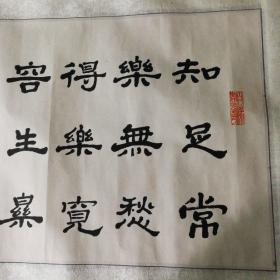 知足常
樂無愁
得樂寬
容生暴